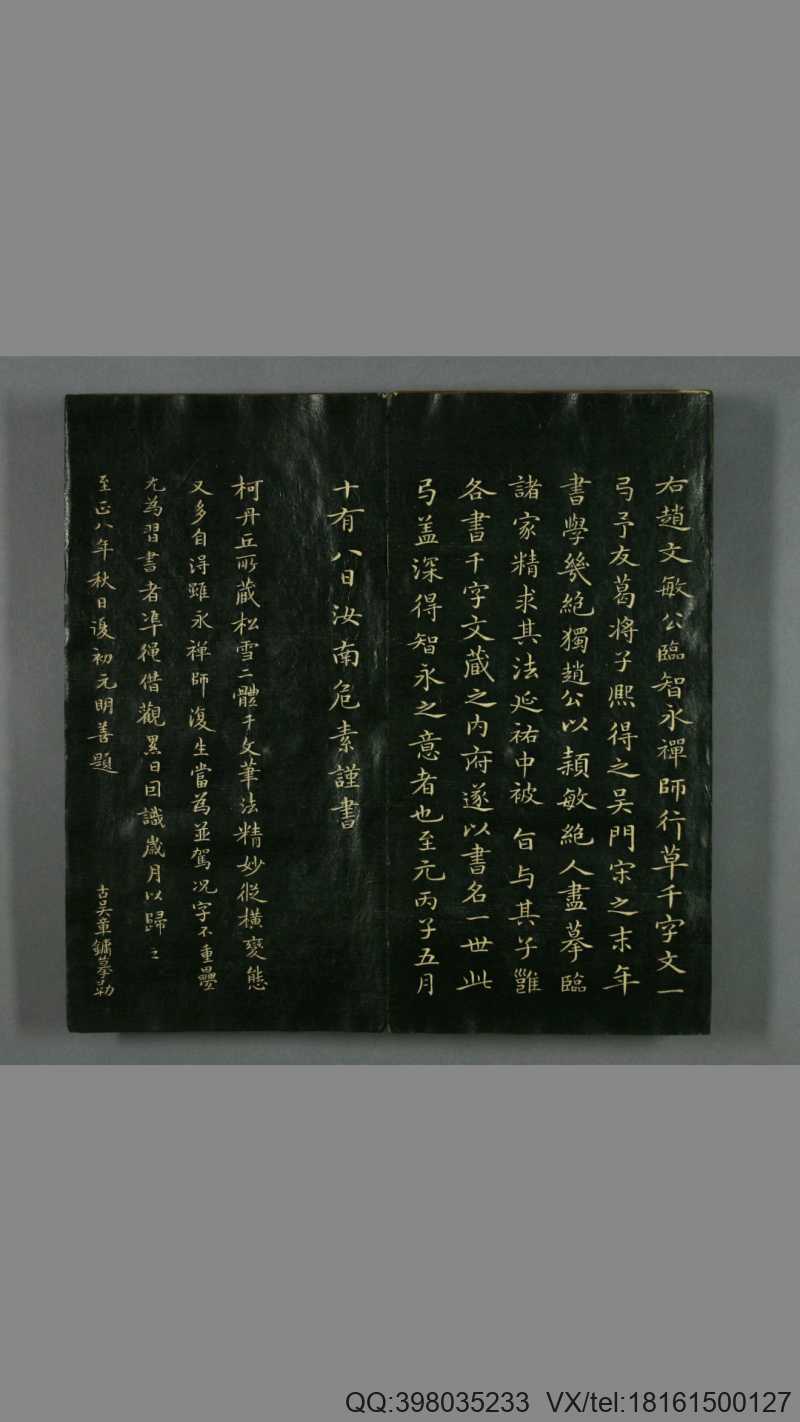 右趙文敏公臨智永禪師行草千字文一
弓予友葛將子熈得之吴門宋之末年
書學幾絶獨趙公以頴敏絶人盡摹臨
諸家精求其法延祐中被旨与其子雝
各書千字文蔵之内府遂以書名一世此
弓盖深得智永之意者也至元丙子五月
十有八日汝南危素謹書
柯丹丘所蔵松雪二體千文筆法精妙從横變態
又多自得雖永禪師復生當為並駕况字不重疊
尤為習書者準繩借觀累日回識歲月以歸之
至正八年秋日復初元明善題
古吴章鏞摹勒
QQ:398035233 VX/tel:18161500127